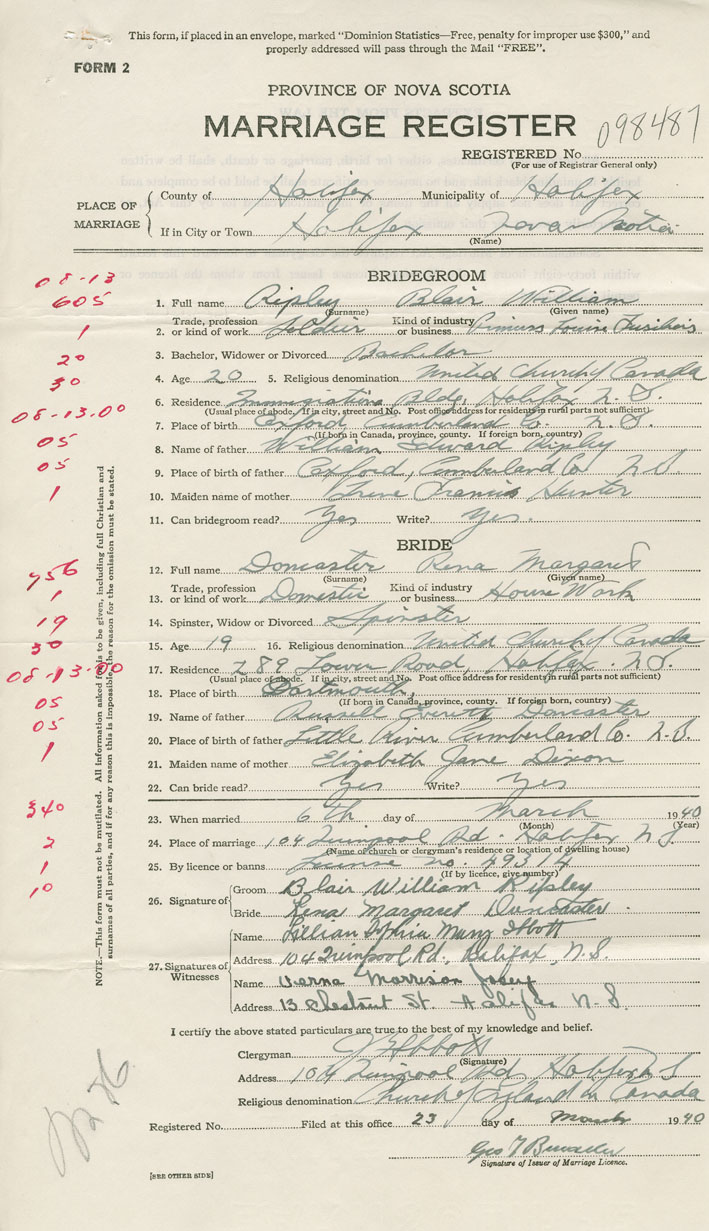 This form, if placed in an envelope, marked "Dominion Statistics—Free, penalty for improper use $300," and
properly addressed will pass through the Mail "FREE".
FORM 2
PROVINCE OF NOVA SCOTIA
MARRIAGE REGISTER
098487
REGISTERED No.
(For use of Registrar General only)
PLACE OF MARRIAGE
County of Halifax Municipality of Halifax
If in City or Town Halifax Nova Scotia
(Name)
BRIDEGROOM
08-13
605
1. Full name Ripley Blair William
(Surname) (Given name)
1
2. Trade, profession or kind of work Soldier Kind of industry or business Princess Louise Fusiliers
3. Bachelor, Widower or Divorced Bachelor
20
4. Age 20 5. Religious denomination United Church of Canada
30
6. Residence Immigration Bldg, Halifax N.S.
(Usual place of abode. If in city, street and No. Post office address for residents in rural parts not sufficient)
08-13.00
7. Place of birth Oxford Cumberland Co. N.S.
(If born in Canada, province, county. If foreign born, country)
05
8. Name of father William Edward Ripley
05
9. Place of birth of father Oxford, Cumberland Co N.S
1
10. Maiden name of mother Francis Hunter
11. Can bridegroom read? Yes Write? Yes.
BRIDE
12. Full name Doncaster Rena Margaret
(Surname) (Given name)
756
1
13. Trade, profession or kind of work Domestic Kind of industry or business House Work
14. Spinster, Widow or Divorced Spinster
19
15. Age 19 16. Religious denomination United Church of Canada
30
17. Residence 289 Lower Road, Halifax. N.S.
(Usual place of abode. If in city, street and No. Post office address for residents in rural parts not sufficient)
08-13-00
18. Place of birth Dartmouth,
(If born in Canada, province, county. If foreign born, country)
05
19. Name of father Russell Everett Doncaster
05
20. Place of birth of father Little River Cumberland Co. N.S.
1
21. Maiden name of mother Elizabeth Jane Dixon
22. Can bride read? Yes Write? Yes
340
23. When married 6th day of March 1940
(Month) (Year)
2
24. Place of marriage 104 Quinpool Rd. Halifax N.S.
(Name of church or clergyman's residence or location of dwelling house)
1
25. By licence or banns License no. 49314
(If by licence, give number)
10
26. Signature of
Groom Blair William Ripley
Bride Rena Margaret Doncaster.
27. Signatures of Witnesses
Name Lillian Sophia Abbott
Address 104 Quinpool Rd., Halifax, N.S.
Name Verna Morrison
Address 13 Chestnut St. Halifax N.S.
NOTE.—This form must not be mutilated. All information asked for is to be given, including full Christian and
surnames of all parties, and if for any reason this is impossible, the reason for the omission must be stated.
I certify the above stated particulars are true to the best of my knowledge and belief.
Clergyman Abbott
(Signature)
Address 104 Quinpool Rd Halifax N S
Religious denomination Church of England in Canada
Registered No. Filed at this office 23 day of March 1940
Geo
Signature of Issuer of Marriage Licence.
[SEE OTHER SIDE]